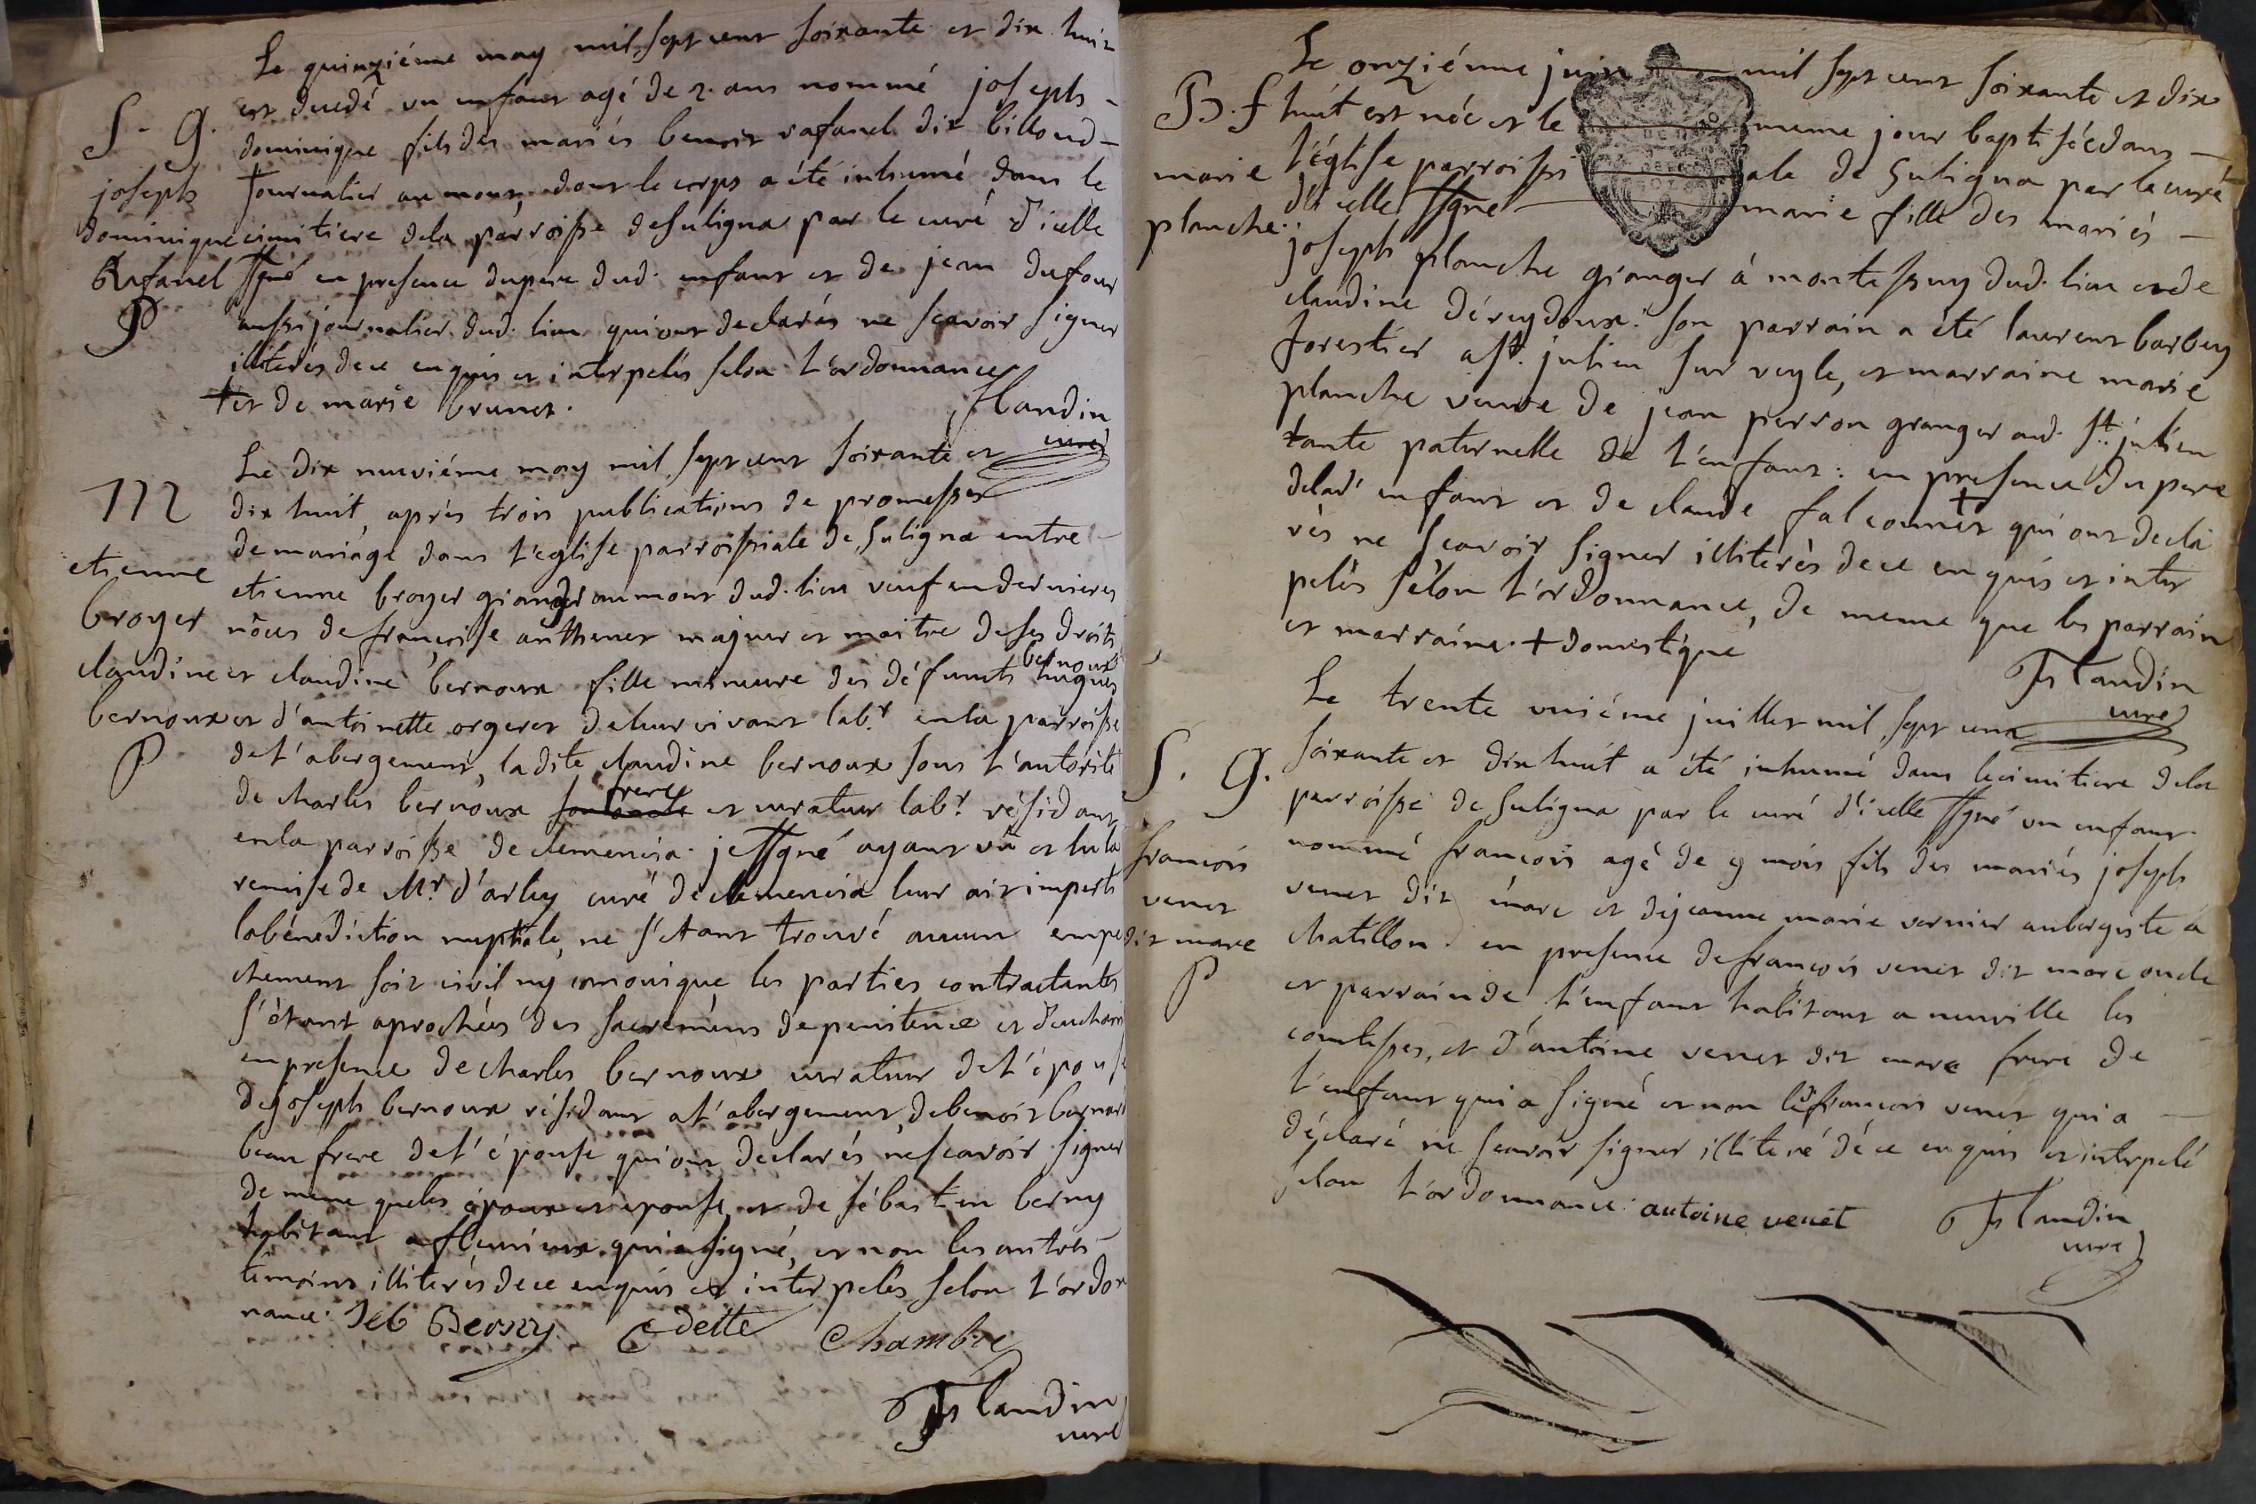 Le quinziéme may mil sept cent soixante et dix huit
S. G.
est decedé un enfant agé de 2. ans nommé joseph
dominique fils des mariés benoit rafanel dit billoud
joseph
dominique
Rafanel
P
+ journalier au mont, dont le corps a été inhumé dans le
cimitiere dela parroisse de suligna par le curé d'icelle
ssgné en presence du pere dud. enfant et de jean dufour
aussi journalier dud. lieu qui ont declarés ne scavoir signer
illiterés de ce enquis et interpelés selon l'ordonnance
+ et de marie brunet.
flandin
curé
M
etienne
broyer
claudine
bernoux
P
Le dix neuviéme may mil sept cent soixante et
dix huit, aprés trois publications de promesses
de mariage dans l'eglise parroissiale de suligna entre
etienne broyer granger au mont dud. lieu veuf en dernieres
nôces de francoise anthenet majeur et maitre de ses droits
et claudine bernoux fille mineure des défunts hugues bernoux
et d'antoinette orgeret de leur vivant labr. en la parroisse
de l'abergement, ladite claudine bernoux sous l'autorité
de charles bernoux frere et curateur labr. résidant
en la parroisse de clemencia. je ssgné ayant vû et lu la
remise de Mr. d'arley curé de clemencia leur ait imparti
la bénédiction nuptiale, ne s'etant trouvé aucun empe
chement soit civil ny canonique les parties contractantes
s'étant aprochées des sacremens de penitence et d'euchari
en presence de charles bernoux curateur de l'épouse
de joseph bernoux résidant a l'abergement, de benoit bernard
beau frere de l'épouse qui ont declarés ne scavoir signer
de meme que les époux et epouse, et de sébastien berny
habitant a fleurieux qui a signé, et non les autres
témoins illiterés de ce enquis et interpelés selon l'ordon
nance. Seb Berny Edette Chambre
flandin
curé
Le onziéme juin mil sept cent soixante et dix
B. f
marie
planche.
huit est née et le meme jour baptisée dans
l'église parroissiale de suligna par le curé
d'icelle ssgné marie fille des mariés
joseph planche granger à montessuy dud. lieu et de
claudine déreydoux: son parrain a été laurent barbey
forestier a st. julien sur veyle, et marraine marie
planche veuve de jean perron granger aud. st. julien
tante paternelle de l'enfant: en presence du pere
delad. enfant et de claude falconnet + qui ont decla
rés ne scavoir signer illiterés de ce enquis et inter
pelés selon l'ordonnance, de meme que les parrain
et marraine. + domestique
flandin
curé
S. G.
francois
venet
dit mare
P
Le trente uniéme juillet mil sept cent
soixante et dix huit a été inhumé dans le cimitiere dela
parroisse de suligna par le curé d'icelle ssgné un enfant
nommé francois agé de 9 mois fils des mariés joseph
venet dit mare et de jeanne marie vernier aubergiste a
chatillon. en presence de francois venet dit mare oncle
et parrain de l'enfant habitant a neuville les
comtesses, et d'antoine venet dit mare frere de
l'enfant qui a signé et non led. francois venet qui a
déclaré ne scavoir signer illiteré de ce enquis et interpelé
selon l'ordonnance. antoine venet
flandin
curé